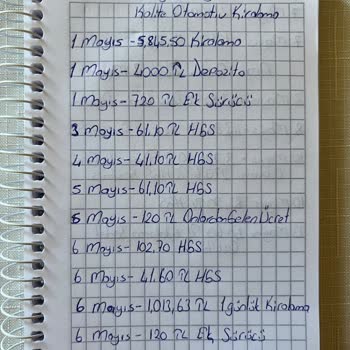 Kalite Otomotiv Kiralama
1 Mayıs - 5,845,50 Kiralama
1 Mayıs - 4000 TL Depozito
1 Mayıs - 720 TL Ek Sürücü
3 Mayıs - 61.10 TL HGS
4 Mayıs - 41.10 TL HGS
5 Mayıs - 61,10 TL HGS
5 Mayıs - 120 TL Onlardan Gelen Ücret
6 Mayıs - 102,70 HGS
6 Mayıs - 41.60 TL HGS
6 Mayıs - 1,013,63 TL 1 günlük Kiralama
6 Mayıs - 120 TL Ek Sürücü